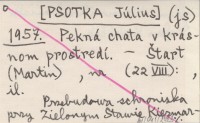 [PSOTKA Július] (js)
1957. Pekná chata v krás-
nom prostredí. – Štart
(Martin), na (22 VIII):,
il.
Przebudowa schroniska
przy Zielonym Stawie Kiezmar-